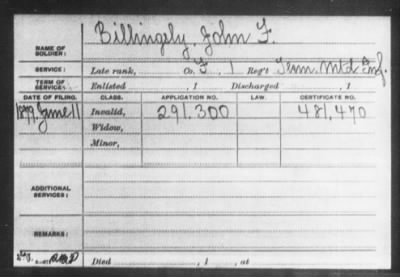 Billingely, John F.
NAME OF SOLDIER:
SERVICE: Late rank, Co. F, 1 Reg't Tenn. Mtd Inf.
TERM OF SERVICE: Enlisted , 1 Discharged , 1
DATE OF FILING. CLASS. APPLICATION NO. LAW. CERTIFICATE NO.
1879, June 11 Invalid, 291.300 481,470
Widow,
Minor,
ADDITIONAL SERVICES:
REMARKS:
Died , 1 , at